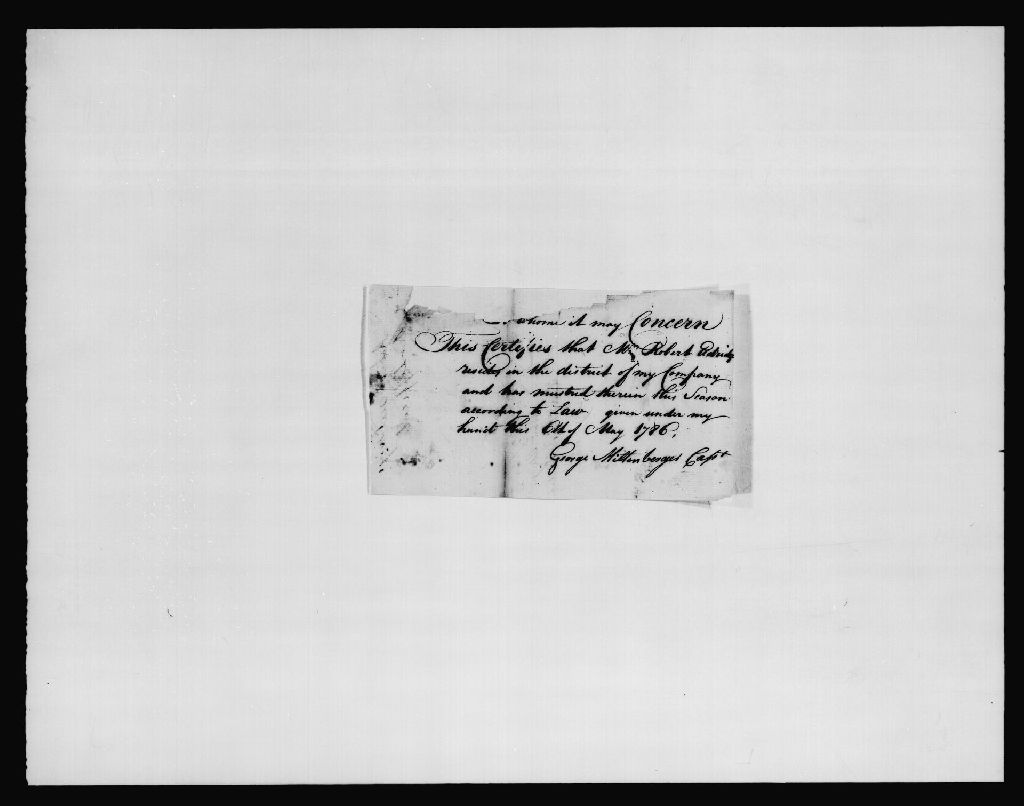 whome it may Concern
This Certifies that Mr. Robert Aldridg
resides in the district of my Company
and has mustred therein this Season
according to Law given under my
hand this 6th of May 1786.
George Mittenberger Capt